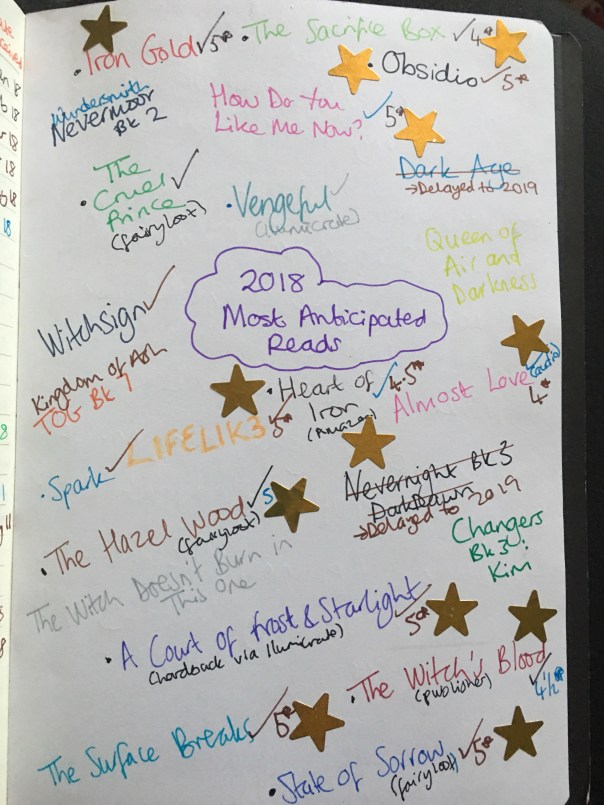 • Iron Gold ✓ 5*
• The Sacrifice Box ✓ 4*
• Obsidio ✓ 5*
Wundersmith
Nevermoor
Bk 2
How Do You
Like Me Now? ✓ 5*
Dark Age
→ Delayed to 2019
The
• Cruel ✓
Prince
(fairyloot)
• Vengeful ✓
(illumicrate)
Queen of
Air and
Darkness
2018
Most Anticipated
Reads
Witchsign ✓
Kingdom of Ash
TOG Bk 7
• Heart of ✓ 4.5*
Iron
(Amazon)
Almost Love (audio)
4*
LIFELIK3 ✓ 5*
• Spark ✓
Nevernight Bk 3
DarkDawn
→ Delayed to 2019
• The Hazel Wood ✓ 5
(fairyloot)
Changers
Bk 3:
Kim
The Witch Doesn't Burn in
This One
• A Court of Frost & Starlight ✓ 5*
(hardback via Illumicrate)
• The Witch's Blood ✓
(publisher) 4½*
The Surface Breaks ✓ 5*
• State of Sorrow ✓ 5*
(fairyloot)
18
18
18
18
18
8